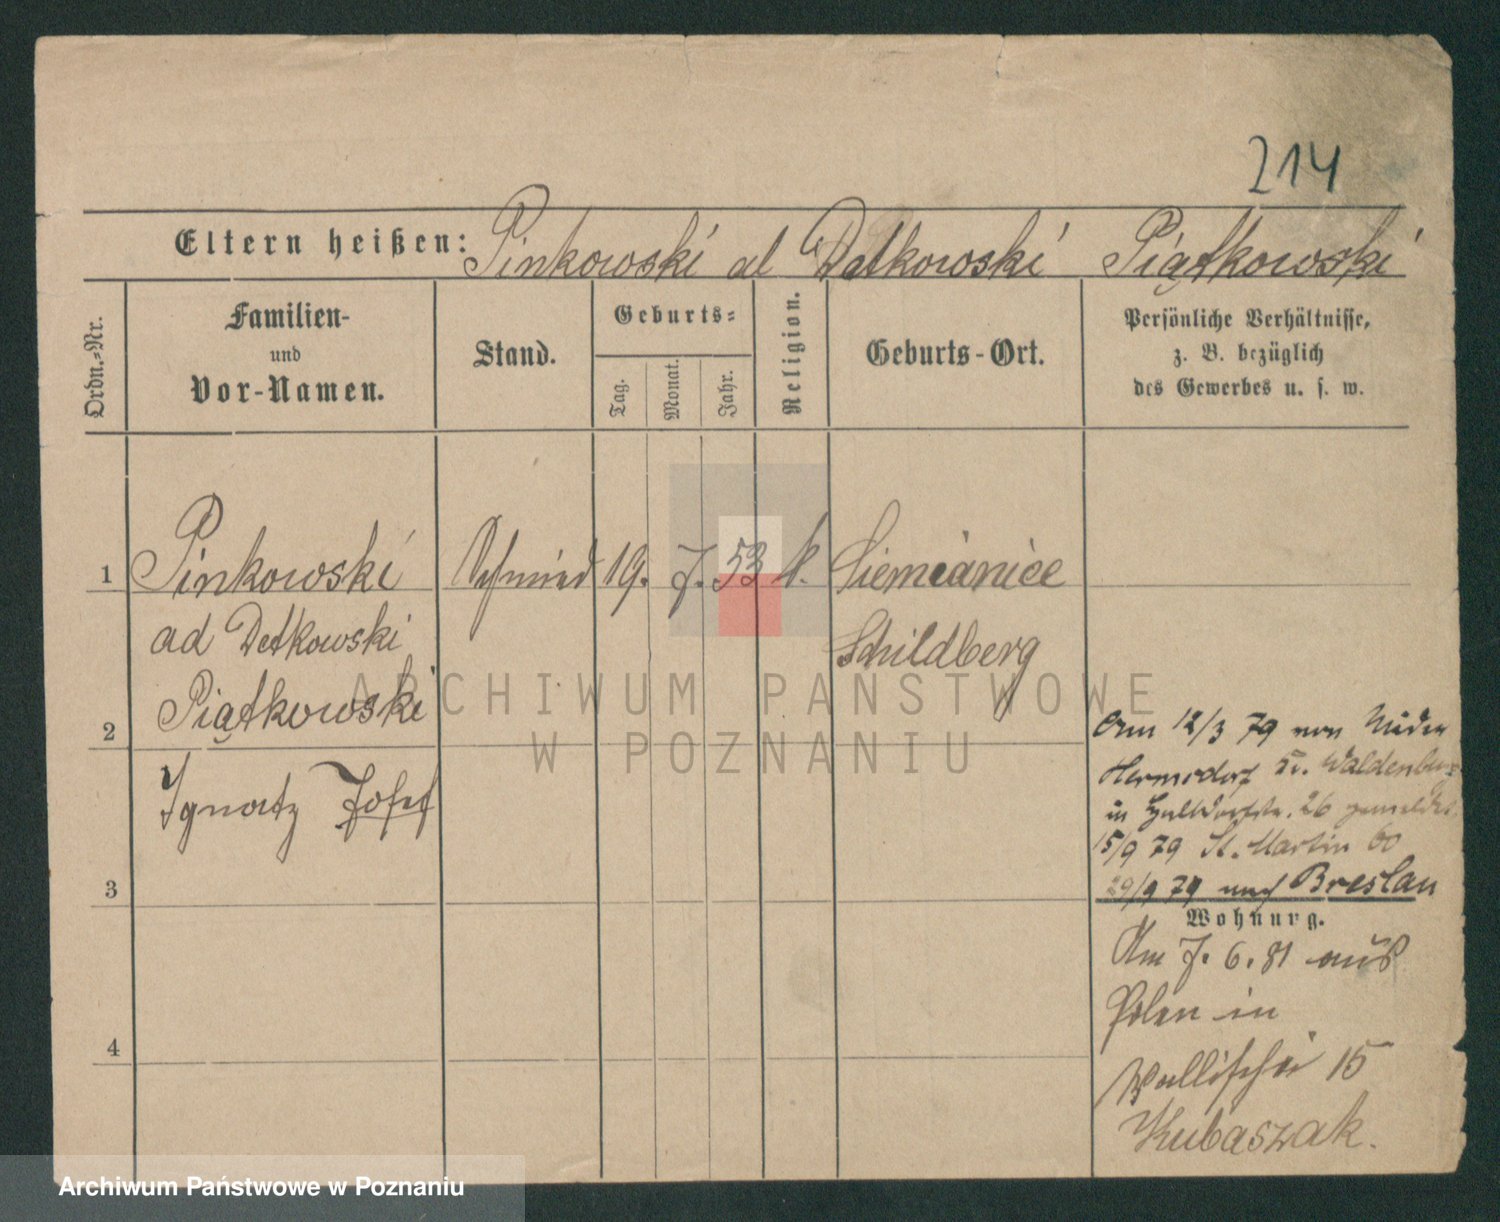 214
Eltern heißen: Pinkowski al Detkowski Piątkowski
Ordn.=Nr.
Familien-
und
Vor-Namen.
Stand.
Geburts=
Tag.
Monat.
Jahr.
Religion.
Geburts-Ort.
Persönliche Verhältnisse,
z. B. bezüglich
des Gewerbes u. s. w.
1 Pinkowski Schmied 19. 7. 53 k. Siemianice
ad Detkowski Schildberg
2 Piątkowski
Ignatz Josef
3
4
Am 12/3 79 von Nieder
Hermsdorf Kr. Waldenburg
in 26 gemeldet
15/9 79 St. Martin 60
29/9 79 nach Breslau
Wohnung.
Am 7. 6. 81 aus
Polen in
Wallischei 15
Kubaszak.
ARCHIWUM PAŃSTWOWE
W POZNANIU
Archiwum Państwowe w Poznaniu